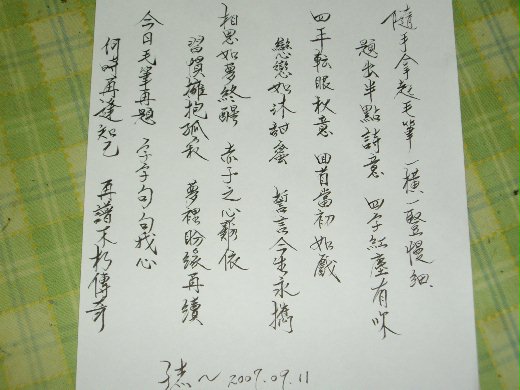 隨手拿起毛筆 一橫一豎慢細
題出半點詩意 四字紅塵有味
四年轉眼秋意 回首當初如戲
戀戀如沐甜蜜 誓言今生永攜
相思如夢終醒 赤子之心難依
習慣擁抱孤和 夢裡盼緣再續
今日毛筆再題 字字句句我心
何時再逢知己 再譜不朽傳奇
2007.09.11